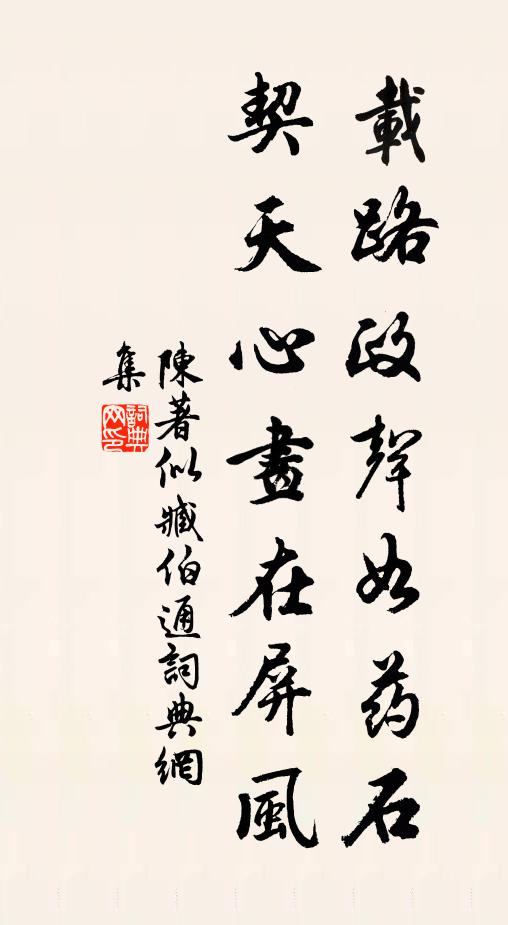 載路政聲如药石
契天心畫在屏風
陳著似臧伯通詞典網
集
詞典
网印